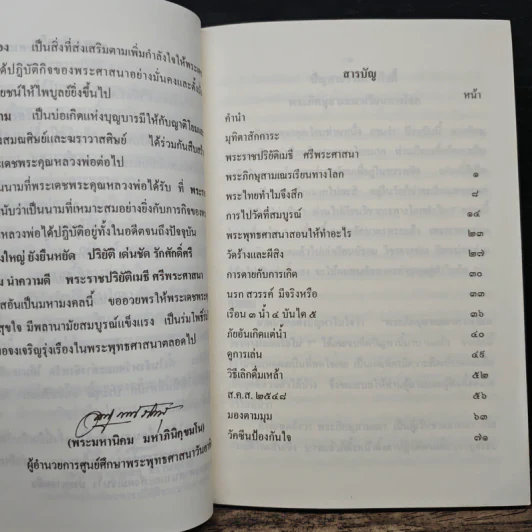 เป็นสิ่งที่ส่งเสริมตามเพิ่มกำลังใจให้พระเดช
ได้ปฏิบัติกิจของพระศาสนาอย่างมั่นคงและตั้งมั่น
ยชน์ให้ไพบูลย์ยิ่งขึ้นไป
เป็นบ่อเกิดแห่งบุญบารมีให้กับญาติโยม
ได้ร่วมกันสืบสร้าง
เดชพระคุณหลวงพ่อต่อไป
นนามที่พระเดชพระคุณหลวงพ่อได้รับ ที่ พระ
นับว่าเป็นนามที่เหมาะสมอย่างยิ่งกับภารกิจของ
หลวงพ่อได้ปฏิบัติอยู่ทั้งในอดีตจนถึงปัจจุบัน
ใหญ่ ยังยืนหยัด ปริยัติ เด่นชัด รักศักดิ์ศรี
นำความดี พระราชปริยัติเมธี ศรีพระศาสนา
สอันเป็นมหามงคลนี้ ขออวยพรให้พระเดชพระคุณ
สุขใจ มีพลานามัยสมบูรณ์แข็งแรง เป็นร่มโพธิ์
จงเจริญรุ่งเรืองในพระพุทธศาสนาตลอดไป
(พระมหานิคม มหาภินิกฺขมโน)
ผู้อำนวยการศูนย์ศึกษาพระพุทธศาสนาวันอาทิตย์
สารบัญ
หน้า
คำนำ
มุทิตาสักการะ
พระราชปริยัติเมธี ศรีพระศาสนา
พระภิกษุสามเณรเรียนทางโลก ๑
พระไทยทำไมจึงสึก ๘
การไปวัดที่สมบูรณ์ ๑๔
พระพุทธศาสนาสอนให้ทำอะไร ๒๓
วัดร้างและผีสิง ๒๗
การตายกับการเกิด ๓๐
นรก สวรรค์ มีจริงหรือ ๓๓
เรือน ๓ น้ำ ๔ บันได ๕ ๓๖
ภัยอันเกิดแต่น้ำ ๔๐
ดูการเล่น ๔๙
วิธีเลิกดื่มเหล้า ๕๒
ส.ค.ส. ๒๕๔๘ ๕๖
มองตามมุม ๖๓
วัคซีนป้องกันใจ ๗๑